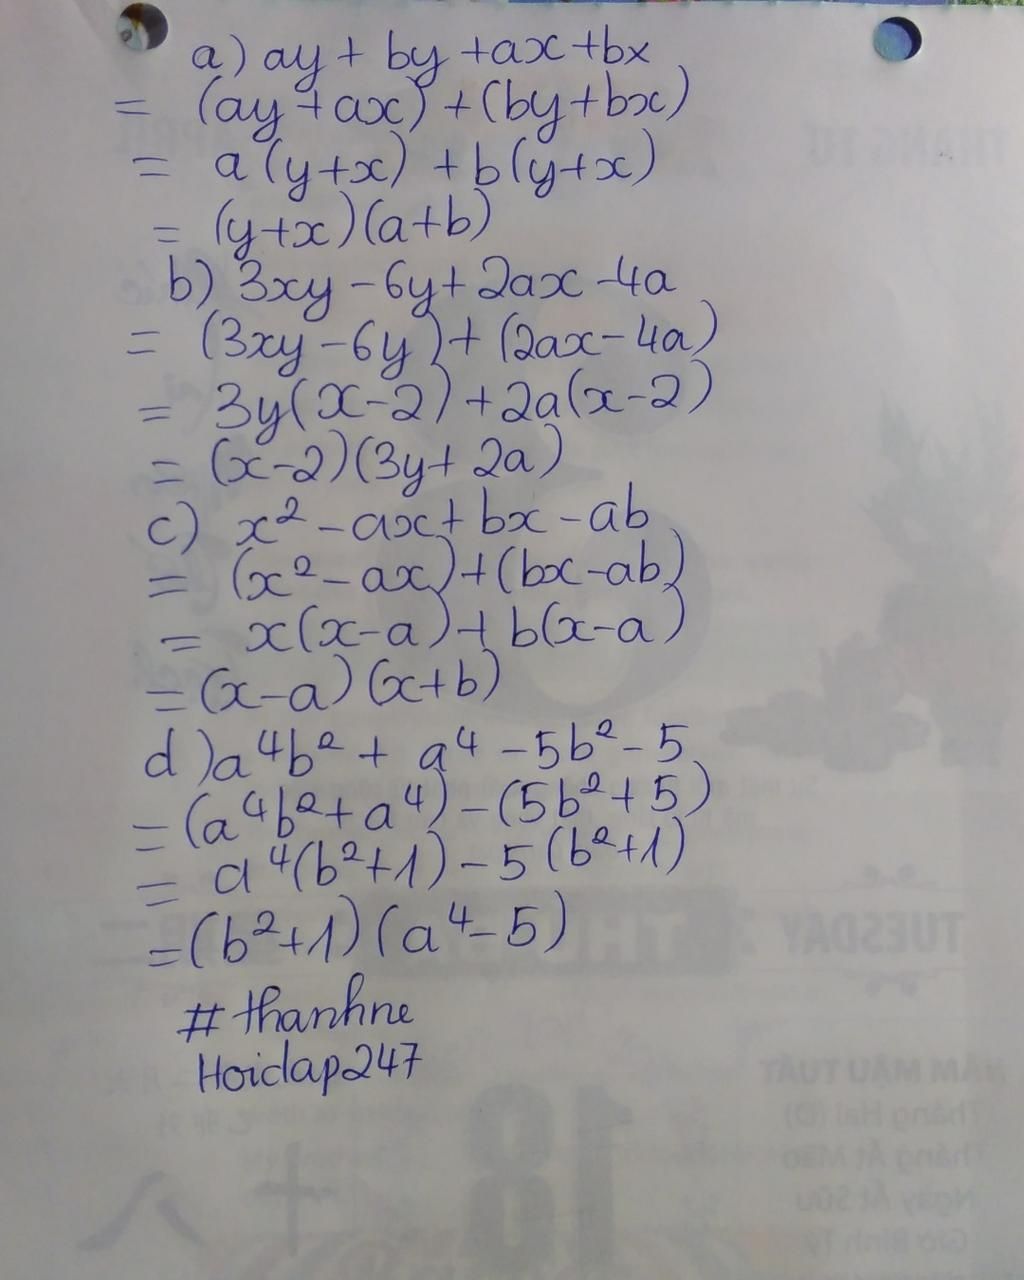 a) ay + by + ax + bx
= (ay + ax) + (by + bx)
= a (y+x) + b (y+x)
= (y+x)(a+b)
b) 3xy - 6y + 2ax - 4a
= (3xy - 6y) + (2ax - 4a)
= 3y(x-2) + 2a(x-2)
= (x-2)(3y + 2a)
c) x² - ax + bx - ab
= (x² - ax) + (bx - ab)
= x(x-a) + b(x-a)
= (x-a) (x+b)
d) a⁴b² + a⁴ - 5b² - 5
= (a⁴b² + a⁴) - (5b² + 5)
= a⁴(b²+1) - 5 (b²+1)
= (b²+1) (a⁴ - 5)
#thanhne
Hoidap247
THÁNG TƯ
APRIL
TUESDAY
NĂM MẬU TUẤT
Tháng Hai (Đ)
Tháng Ất Mão
Ngày Ất Sửu
Giờ Bính Tý
18
十八